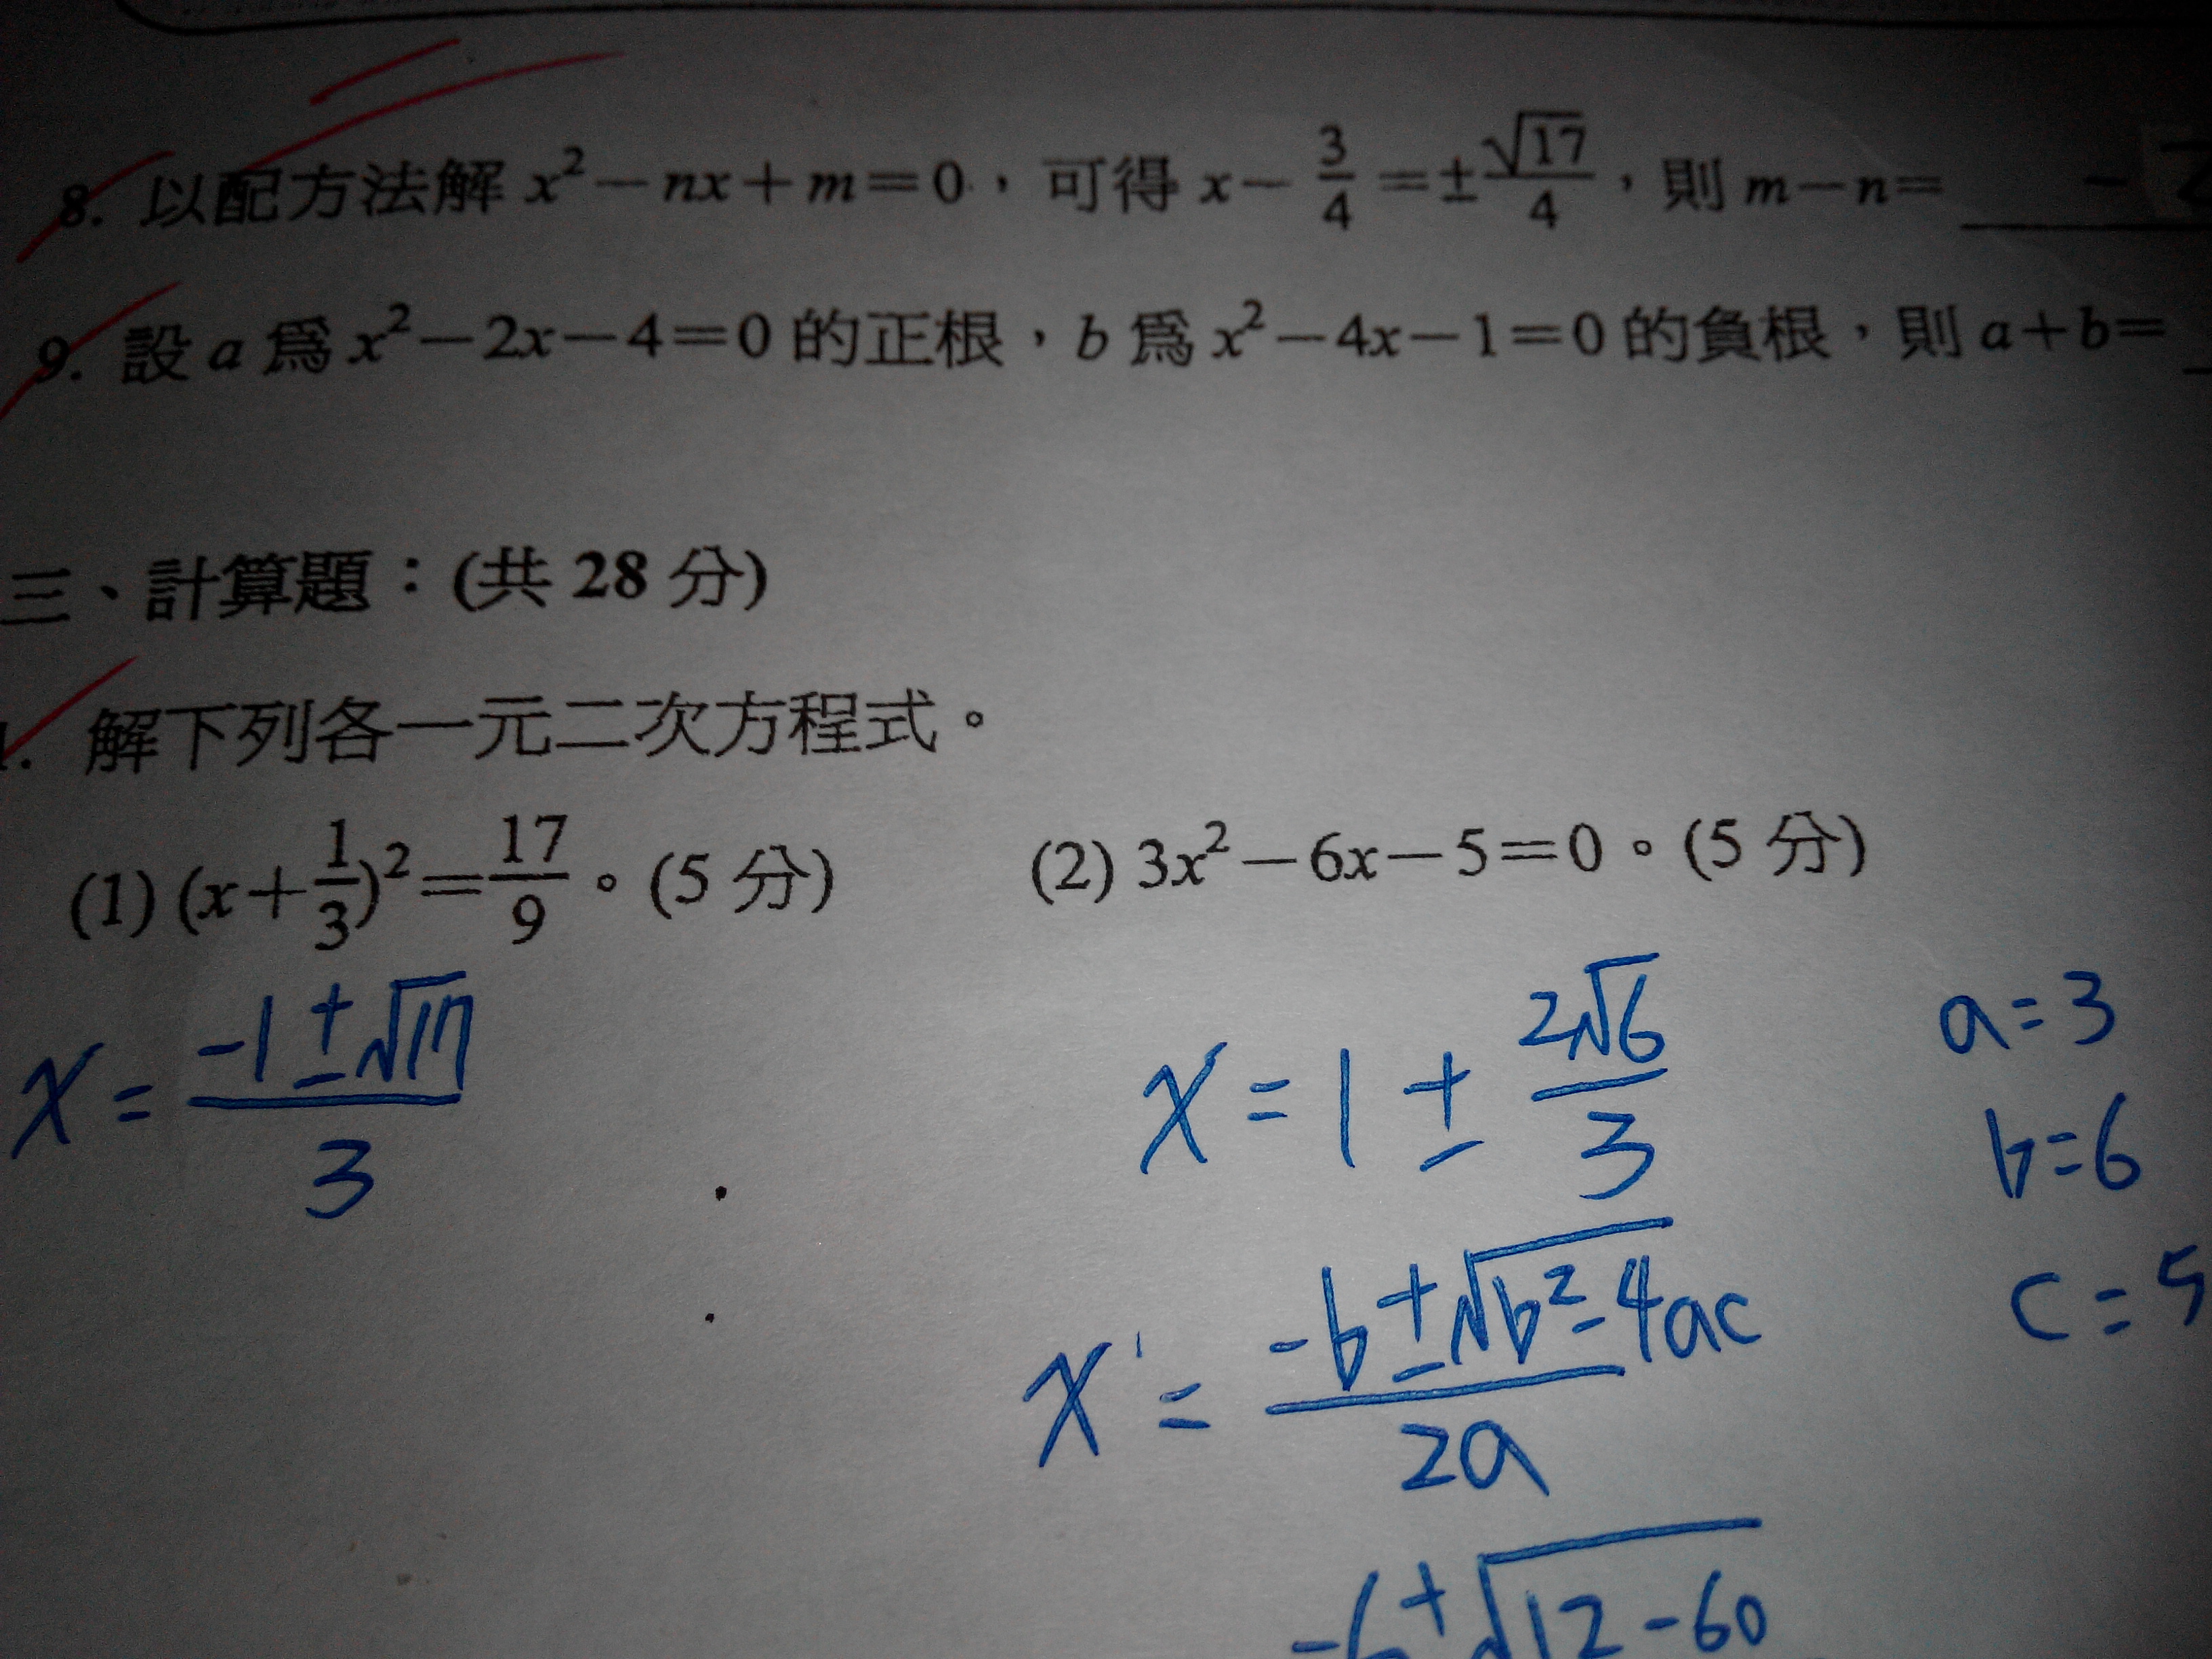 8. 以配方法解 x²－nx＋m＝0，可得 x－3/4＝±√17/4，則 m－n＝ －2
9. 設 a 為 x²－2x－4＝0 的正根，b 為 x²－4x－1＝0 的負根，則 a＋b＝
三、計算題：(共 28 分)
1. 解下列各一元二次方程式。
(1) (x＋1/3)²＝17/9。(5 分)
(2) 3x²－6x－5＝0。(5 分)
x = (-1±√17)/3
x = 1 ± 2√6/3
a=3
b=6
c=5
x = (-b±√b²-4ac)/2a
-6±√12-60